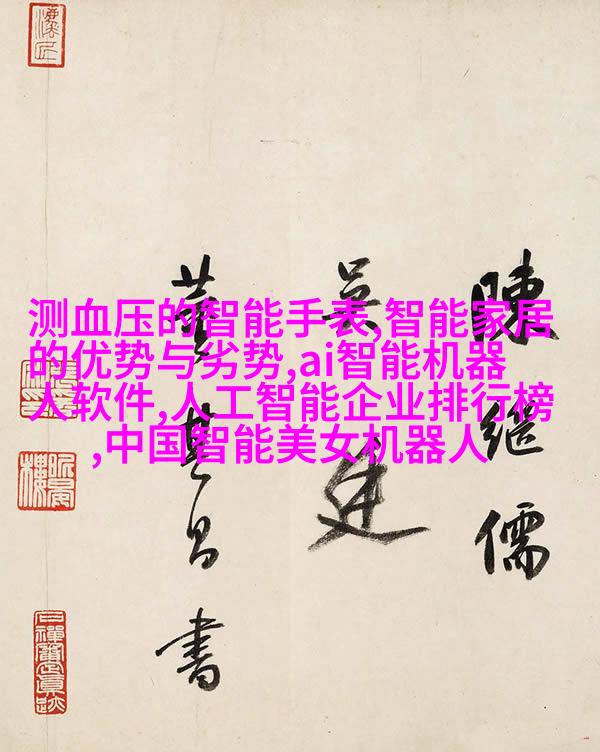 测血压的智能手表,智能家居
的优势与劣势,ai智能机器
人软件,人工智能企业排行榜
,中国智能美女机器人
陳繼儒
吳廷
董其昌書